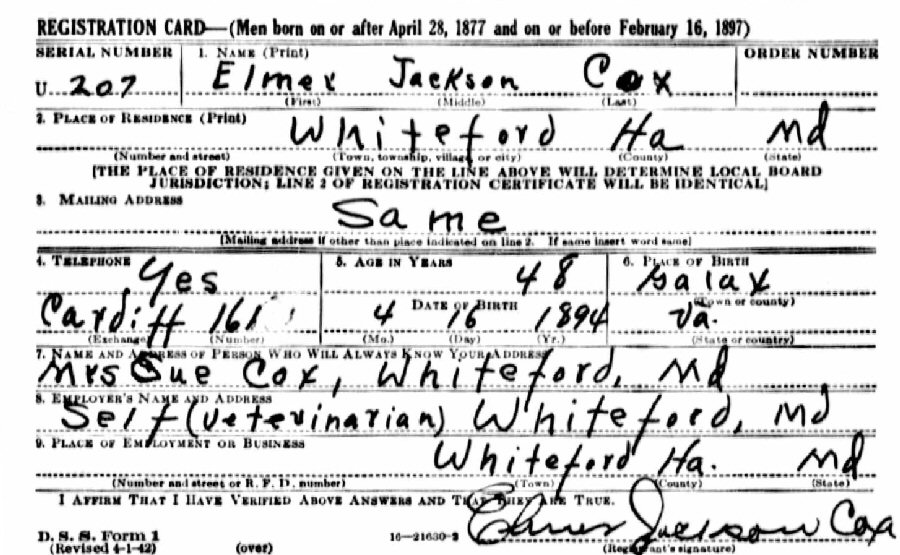 REGISTRATION CARD—(Men born on or after April 28, 1877 and on or before February 16, 1897)
SERIAL NUMBER 1. NAME (Print) ORDER NUMBER
U 207 Elmer Jackson Cox
(First) (Middle) (Last)
2. PLACE OF RESIDENCE (Print)
Whiteford Ha Md
(Number and street) (Town, township, village, or city) (County) (State)
[THE PLACE OF RESIDENCE GIVEN ON THE LINE ABOVE WILL DETERMINE LOCAL BOARD
JURISDICTION; LINE 2 OF REGISTRATION CERTIFICATE WILL BE IDENTICAL]
3. MAILING ADDRESS
Same
[Mailing address if other than place indicated on line 2. If same insert word same]
4. TELEPHONE 5. AGE IN YEARS 6. PLACE OF BIRTH
Yes 48 Galax
DATE OF BIRTH (Town or county)
Cardiff 161 4 16 1894 Va.
(Exchange) (Number) (Mo.) (Day) (Yr.) (State or country)
7. NAME AND ADDRESS OF PERSON WHO WILL ALWAYS KNOW YOUR ADDRESS
Mrs Sue Cox, Whiteford, Md
8. EMPLOYER'S NAME AND ADDRESS
Self (Veterinarian) Whiteford, Md
9. PLACE OF EMPLOYMENT OR BUSINESS
Whiteford Ha. Md
(Number and street or R. F. D. number) (Town) (County) (State)
I AFFIRM THAT I HAVE VERIFIED ABOVE ANSWERS AND THAT THEY ARE TRUE.
Elmer Jackson Cox
D. S. S. Form 1 16—21630-2
(Revised 4-1-42) (over) (Registrant's signature)